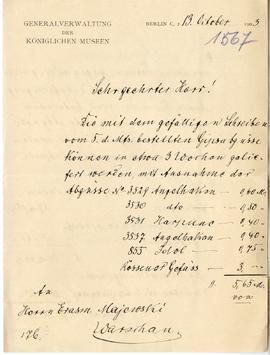 GENERALVERWALTUNG
DER
KÖNIGLICHEN MUSEEN
BERLIN C., 13. October 1903
1567
Sehrgeehrter Herr!
Die mit dem gefälligen Schreiben
vom 5. d. Mts. bestellten Gipsabgüsse
können in etwa 3 Wochen gelie-
fert werden, mit Ausnahme der
Abgüsse No 3529 Angelhaken — 0,60
3530 dto — 0,50
3531 Harpune 0,40
3537 Angelhaken 0,40
855 Idol — 0,75
Gefäss — 3,—
5,65
von
An
Herrn Erasm Majewski
Warschau